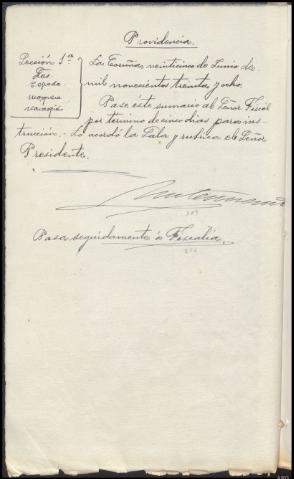 Providencia.
Sección 1ª
La Coruña, veinticinco de Junio de
mil novecientos treinta y ocho.
Pase este sumario al Señor Fiscal
por termino de cinco dias para ins-
trucción.- Lo acordó la Sala y rubrica el Señor
Presidente.
Pasa seguidamente a Fiscalía.